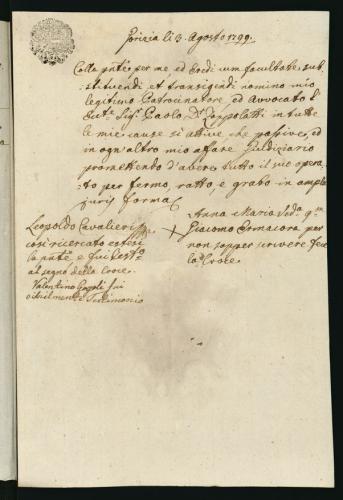 Gorizia li 3. Agosto 1799.
Colla pnte per me, ed Eredi cum facultate sub-
stituendi et transigendi nomino mio
legittimo Patrocinatore, ed Avvocato l'
Sigr Paolo Dr in tutte
le mie cause si attive, che passive, ed
in ogn'altro mio affare Giudiziario
promettendo d'avere tutto il suo opera-
to per fermo, ratto, e grato in ampla
juris forma
Anna Maria Veda qm
Giacomo per
non sapper scrivere fece
la Croce.
Leopoldo Cavalieri
cosi ricercato estesi
la pnte e fui Testo
al segno della Croce
Valentino fui
Testimonio